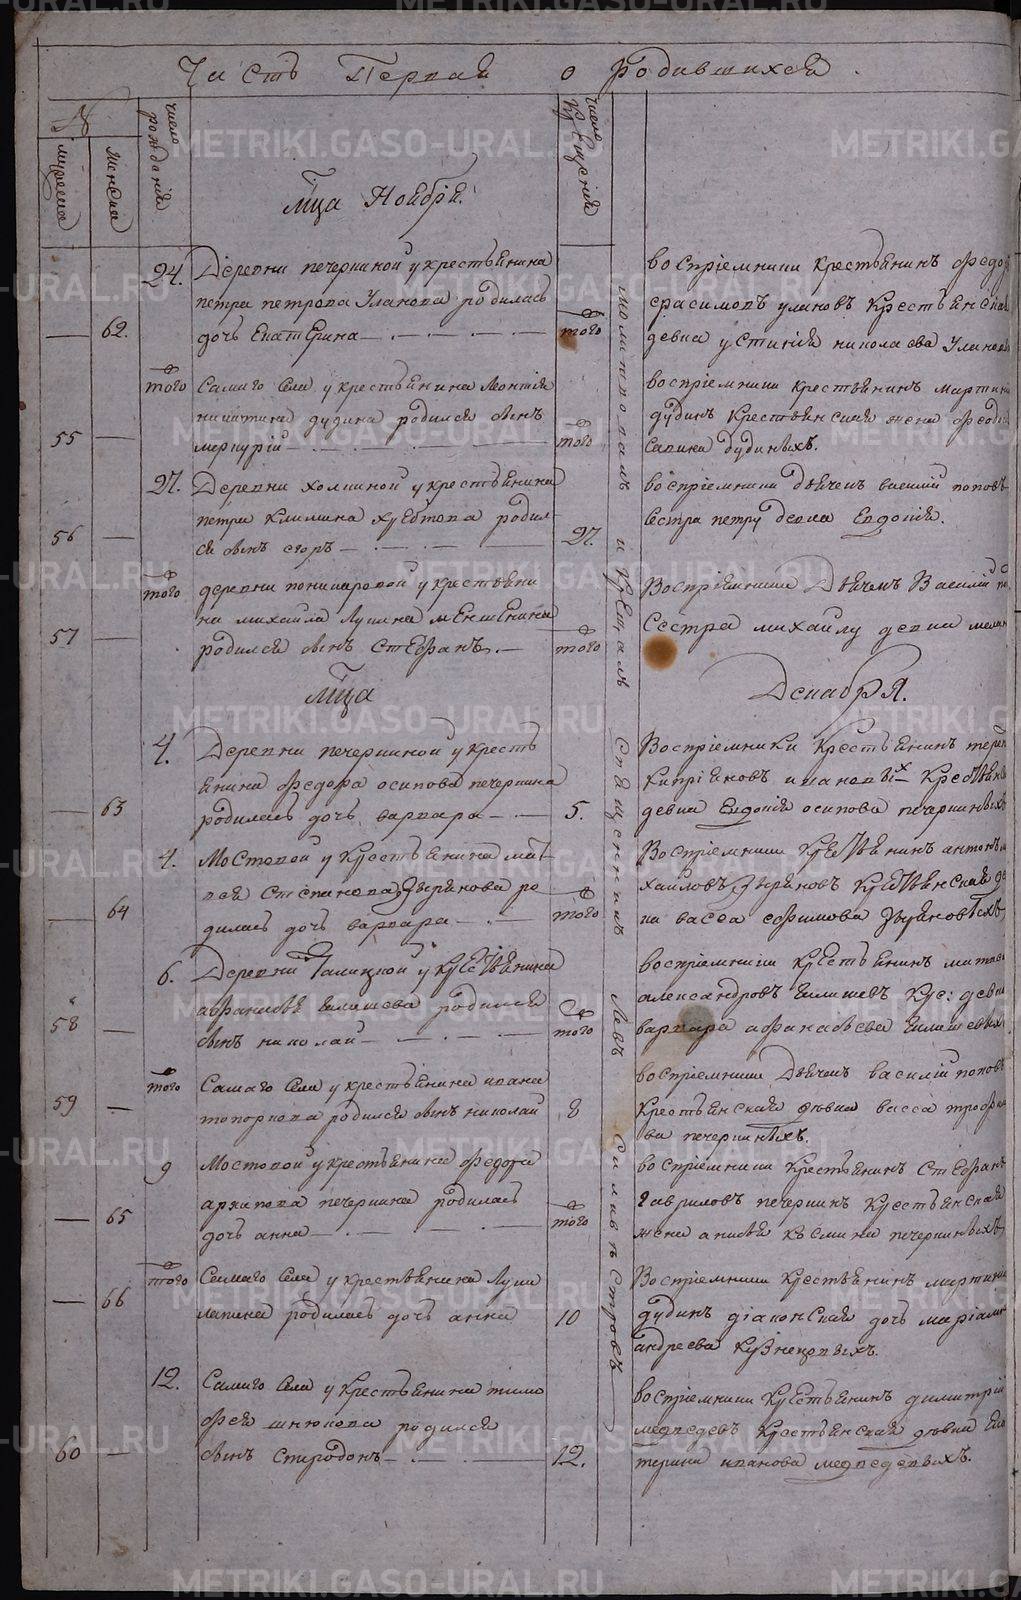 Часть Первая о родившихся.
№
мужеска
женска
число рожденія
число Крещенія
Мца Ноября.
молитвовалъ и Крещалъ Священникъ Левъ Сильвѣстровъ
62.
24.
Деревни печеркиной у крестьянина
петра петрова Уланова родилась
дочь Екатерина
того
воспріемники крестьянинъ Федор
ерасимовъ улановъ Крестьянска
девка устинія николаева Уланов
55
того
Самаго Села у крестьянина Леонтія
никитина дудина родился сынъ
меркурій
того
воспріемники крестьянинъ мартинъ
дудинъ Крестьянская жена Федос
савина дудиныхъ.
56
27.
Деревни холкиной у крестьянина
петра Климина Худтова родил-
ся сынъ егоръ
27.
воспріемники дьячекъ василій поповъ
Сестра петру девка Евдокія.
57
того
деревни пономаровой у крестьяни
на михаила Лукина меншенина
родился сынъ Стефанъ.
того
Воспріемники Дьячекъ Василій по
Сестра михаилу девка мелан
Мца Декабря.
63
4.
Деревни печеркиной у кресть
янина Федора осипова печеркина
родилась дочь варвара
5.
Воспріемники Крестьянинъ терен
Кипріяновъ ивановыхъ Крестьянс
девка Евдокія осипова печеркиныхъ
64
4.
Мостовой у Крестьянина мат-
вея Степанова Зырянова ро
дилась дочь варвара
того
Воспріемники Крестьянинъ антонъ ми
хайловъ Зыряновъ Крестьянская де
вка васса ефимова Зыряновыхъ
58
6.
Деревни Галицкой у Крестьянина
афанасья Екишева родился
сынъ николай
того
воспріемники крестьянинъ матвей
александровъ Екишевъ Крс: девка
варвара афанасьева Екишевых
59
того
Самаго Села у крестьянина ивана
топоркова родился сынъ николай
8
воспріемники Дьячекъ василій поповъ
Крестьянская девка васса трофим
ва печеркиныхъ.
65
9
Мостовой у крестьянина Федора
архипова печеркина родилась
дочь анна
того
воспріемники Крестьянинъ Стефанъ
гавриловъ печеркинъ Крестьянская
жена анисья козмина печеркиныхъ
66
того
Самаго Села у крестьянина Луки
лапина родилась дочь анна
10
Воспріемники Крестьянинъ мартинъ
дудинъ діаконская дочь маріамн
андреева Кузнецовыхъ.
60
12.
Самаго Села у Крестьянина тимо
фея шнюкова родился
сынъ Спиридонъ
12.
воспріемники Крестьянинъ димитрій
медведевъ Крестьянская девка Ека
терина иванова медведевыхъ.
METRIKI.GASO-URAL.RU